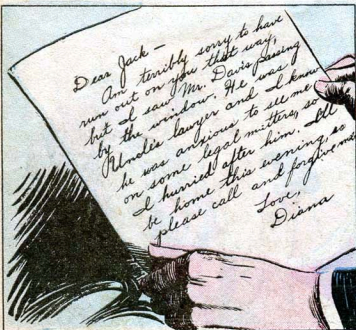 Dear Jack —
Am terribly sorry to have
run out on you that way,
but I saw Mr. Davis passing
by the window. He was my
Uncle's lawyer and I knew
he was anxious to see me
on some legal matters, so
I hurried after him. I'll
be home this evening, so
please call and forgive me
Love,
Diana